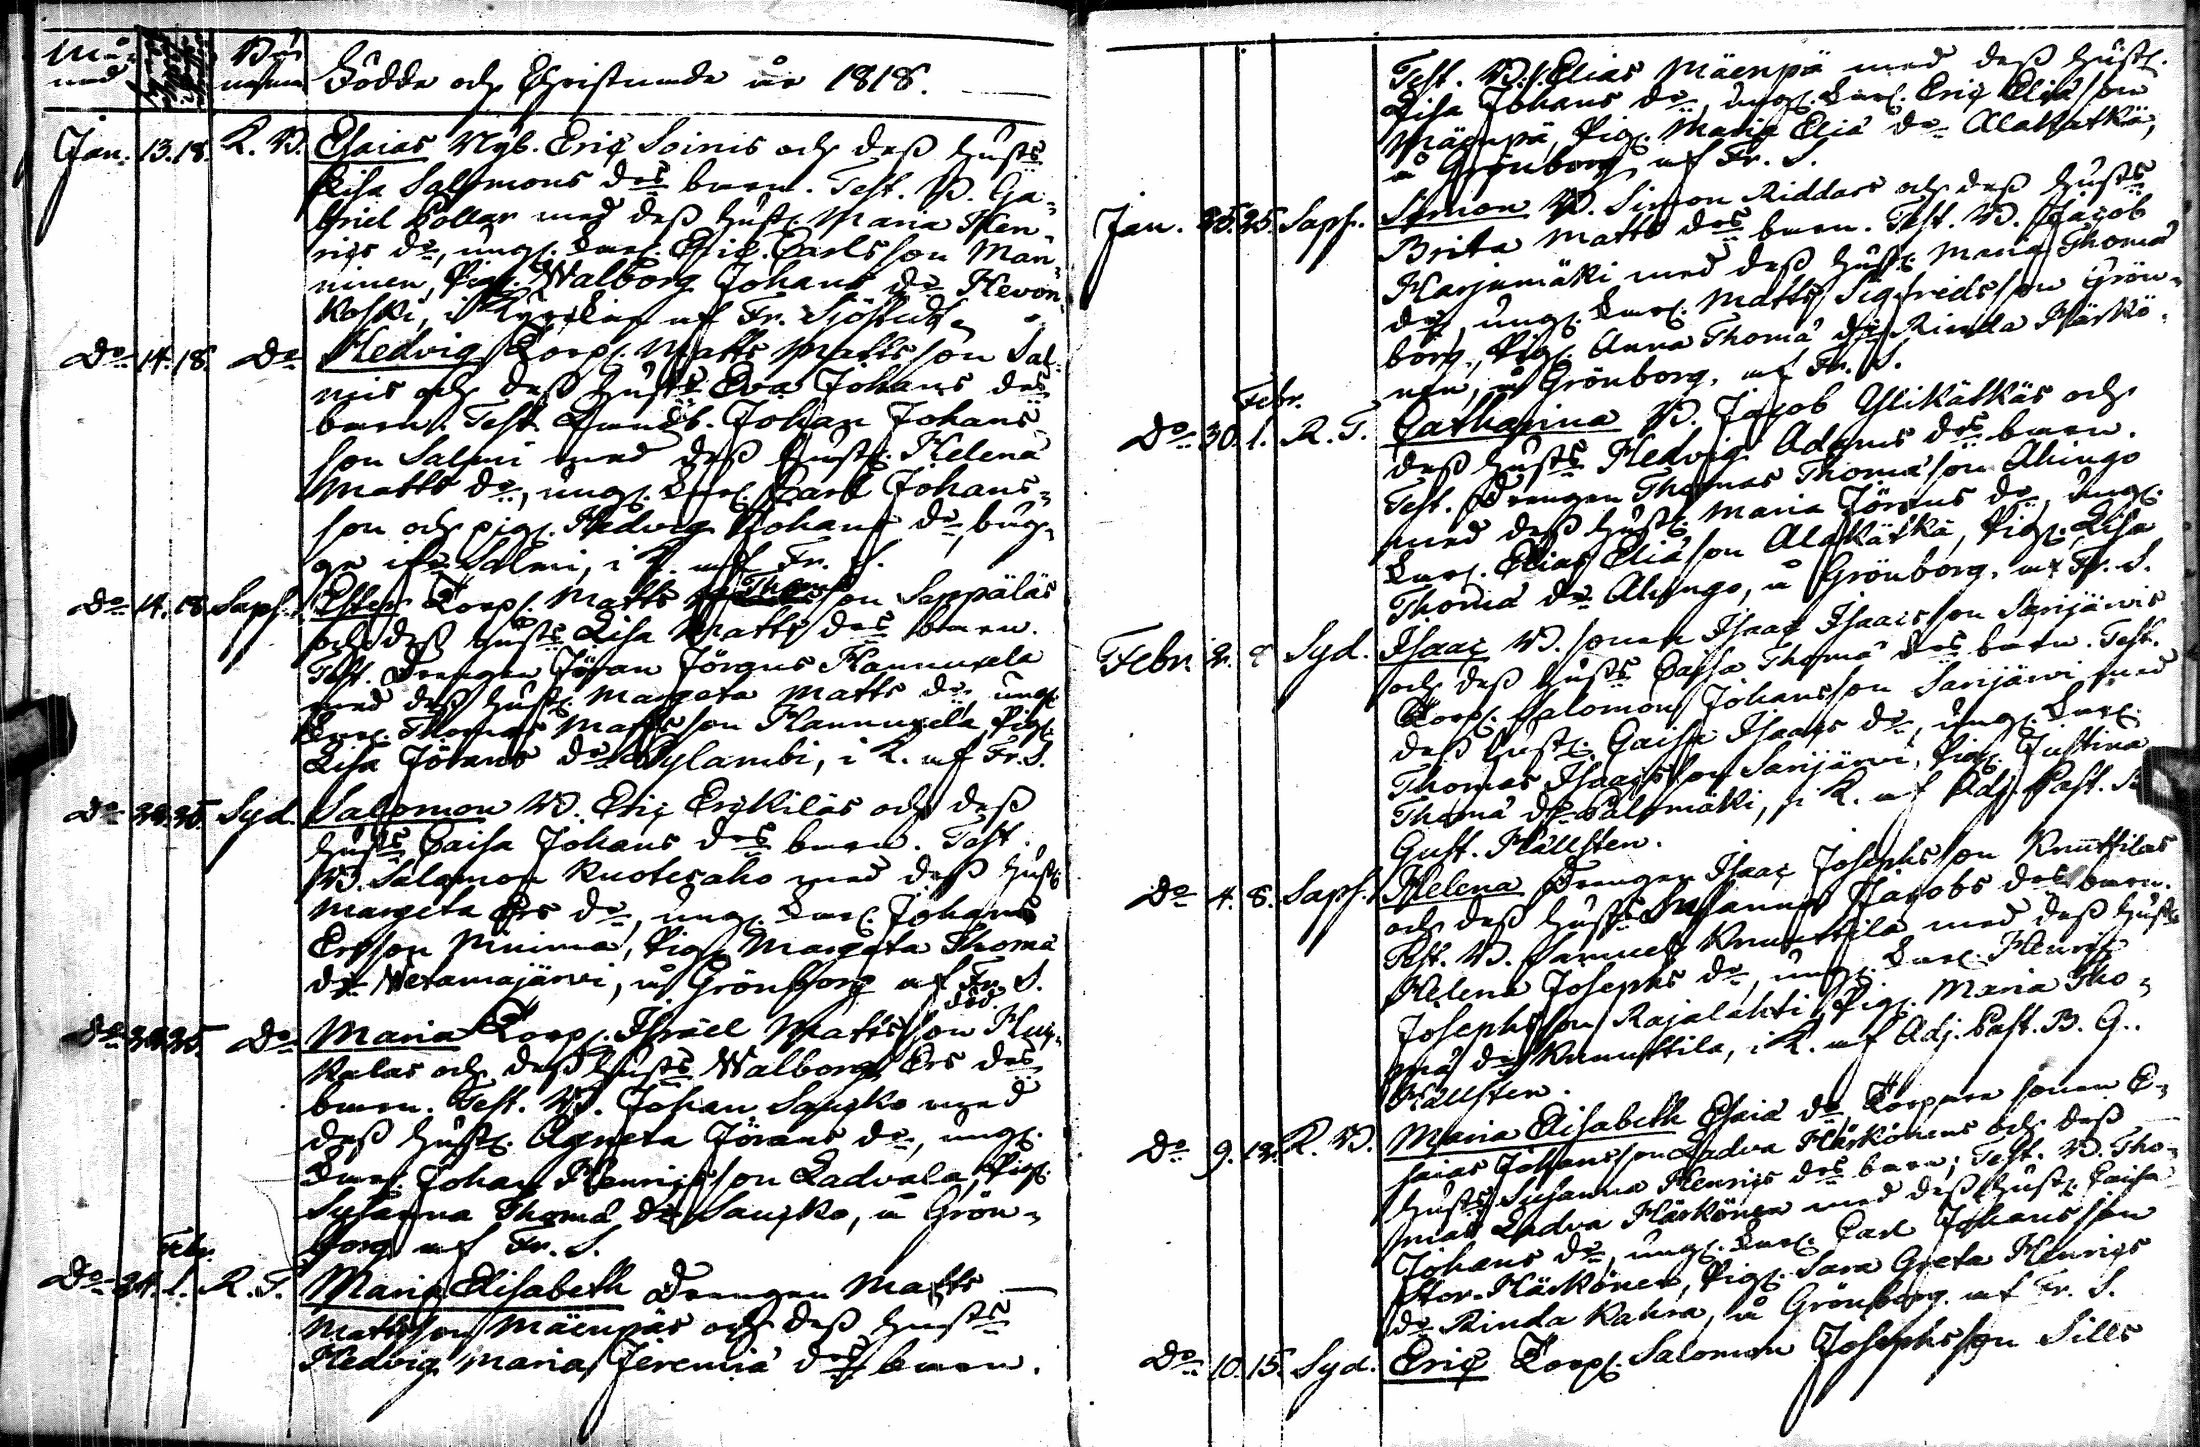 Må- Bÿ
nad namn Födde och Christnade år 1818.
Jan. 13. 18. K. B. Esaias Nyb. Eric Soinis och dess hust:s
Lisa Salomons d:rs barn. Test. B. Ga-
briel Pollar med dess hust. Maria Hen-
rics d:r, ungk. Eric Carlsson Man-
ninen, Pig. Walborg Johans d:r Hevon-
koski, i Kyrckan af Fr. Sjöstedt
D:o 14. 18. D:o Hedvig Torp. Matts Mattsson Sal-
mis och dess hust:s Eva Johans d:rs
barn. Test. Johan Johans-
son Salmi med dess hust. Helena
Matts d:r, ungk. Carl Johans-
son och pig. Hedvig Johans d:r, bäg-
ge ifr. Salmi, i K. af Fr. S.
D:o 14. 18. Saph. Ester Torp. Matts Thomasson Seppäläs
och dess hust:s Lisa Matts d:rs barn.
Test. Drengen Jöran Jörans Hannuxela
med dess hust. Margeta Matts d:r, ungk.
Thomas Mattsson Hannuxela, Pig.
Lisa Jörans d:r Sylambi, i K. af Fr. S.
D:o 25. Syd. Salomon B. Eric Erckiläs och dess
hust:s Caisa Johans d:rs barn. Test.
B. Salomon Kuotesaho med dess hust.
Margeta Ers d:r, ungk. Johans
Ersson Pinima, Pig. Margeta Thomæ
d:r Wetamajärwi, å Grönborg af Fr. S.
död.
D:o 25. D:o Maria Torp. Israel Mattsson
kalas och dess hust:s Walborg Ers d:rs
barn. Test. B. Johan Saucko med
dess hust. Agneta Jörans d:r, ungk.
Johan Henricsson Ladvala, Pig.
Susanna Thomæ d:r Saucko, å Grön-
borg af Fr. S.
Febr.
D:o 24. 1. R. T. Maria Elisabeth Drengen Matts
Mattsson Mäenpäs och dess hust:s
Hedvig Maria Jeremiæ d:rs barn.
Test. B. Elias Mäenpä med dess hust.
Lisa Johans d:r, ungk. Eric Eliæson
Mäenpä, Pig. Maria Eliæ d:r Alakatka,
å Grönborg, af Fr. S.
Jan. 25. 25. Saph. Simon B. Simon Riddars och dess hust:s
Brita Matts d:rs barn. Test. B. Jacob
Harjumäki med dess hust. Maria Thomæ
d:r, ungk. Matts Sigfridsson Grön-
borg, Pig. Anna Thomæ d:r Rinda Härkö-
nen, å Grönborg. af Fr. S.
Febr.
D:o 30. 1. R. T. Catharina B. Jacob Ylikätkäs och
dess hust:s Hedvig Adams d:rs barn.
Test. Drengen Thomas Thomæson Ahingo
med dess hust. Maria Jörans d:r, ungk.
Elias Eliæson Alakätkä, Pig. Lisa
Thomæ d:r Ahingo, å Grönborg. af Fr. S.
Febr. 2. Syd. Isaac B. sonen Isaac Isaacsson Sarijärwis
och dess hust:s Caisa Thomæ d:rs barn. Test.
Torp. Salomon Johansson Sarijärwi med
dess hust. Caisa Isaacs d:r, ungk.
Thomas Isaacsson Sarijärwi, Pig. Justina
Thomæ d:r Palomäki, i K. af Adj. Past. B.
Gust. Hällsten.
D:o 4. 8. Saph. Helena Drengen Isaac Josephsson Knuttilas
och dess hust:s Susanna Jacobs d:rs barn.
Test. B. Samuel Knuuttila med dess hust.
Helena Josephs d:r, ungk. Henric
Josephsson Rajalahti, Pig. Maria Tho-
mæ d:r Knuuttila, i K. af Adj. Past. B. G.
Hällsten.
D:o 9. K. B. Maria Elisabeth Esaiæ d:r Torpare sonen E-
saias Johansson Ladva Härkönens och dess
hust:s Susanna Henrics d:rs barn; Test. B. Tho-
mas Ladva Härkönen med dess hust. Caisa
Johans d:r, ungk. Carl Johansson
Stor-Härkönen, Pig. Sara Greta Henrics
d:r Rinda Kahra, å Grönborg. af Fr. S.
D:o 10. 15. Syd. Eric Torp. Salomon Josephsson Sills